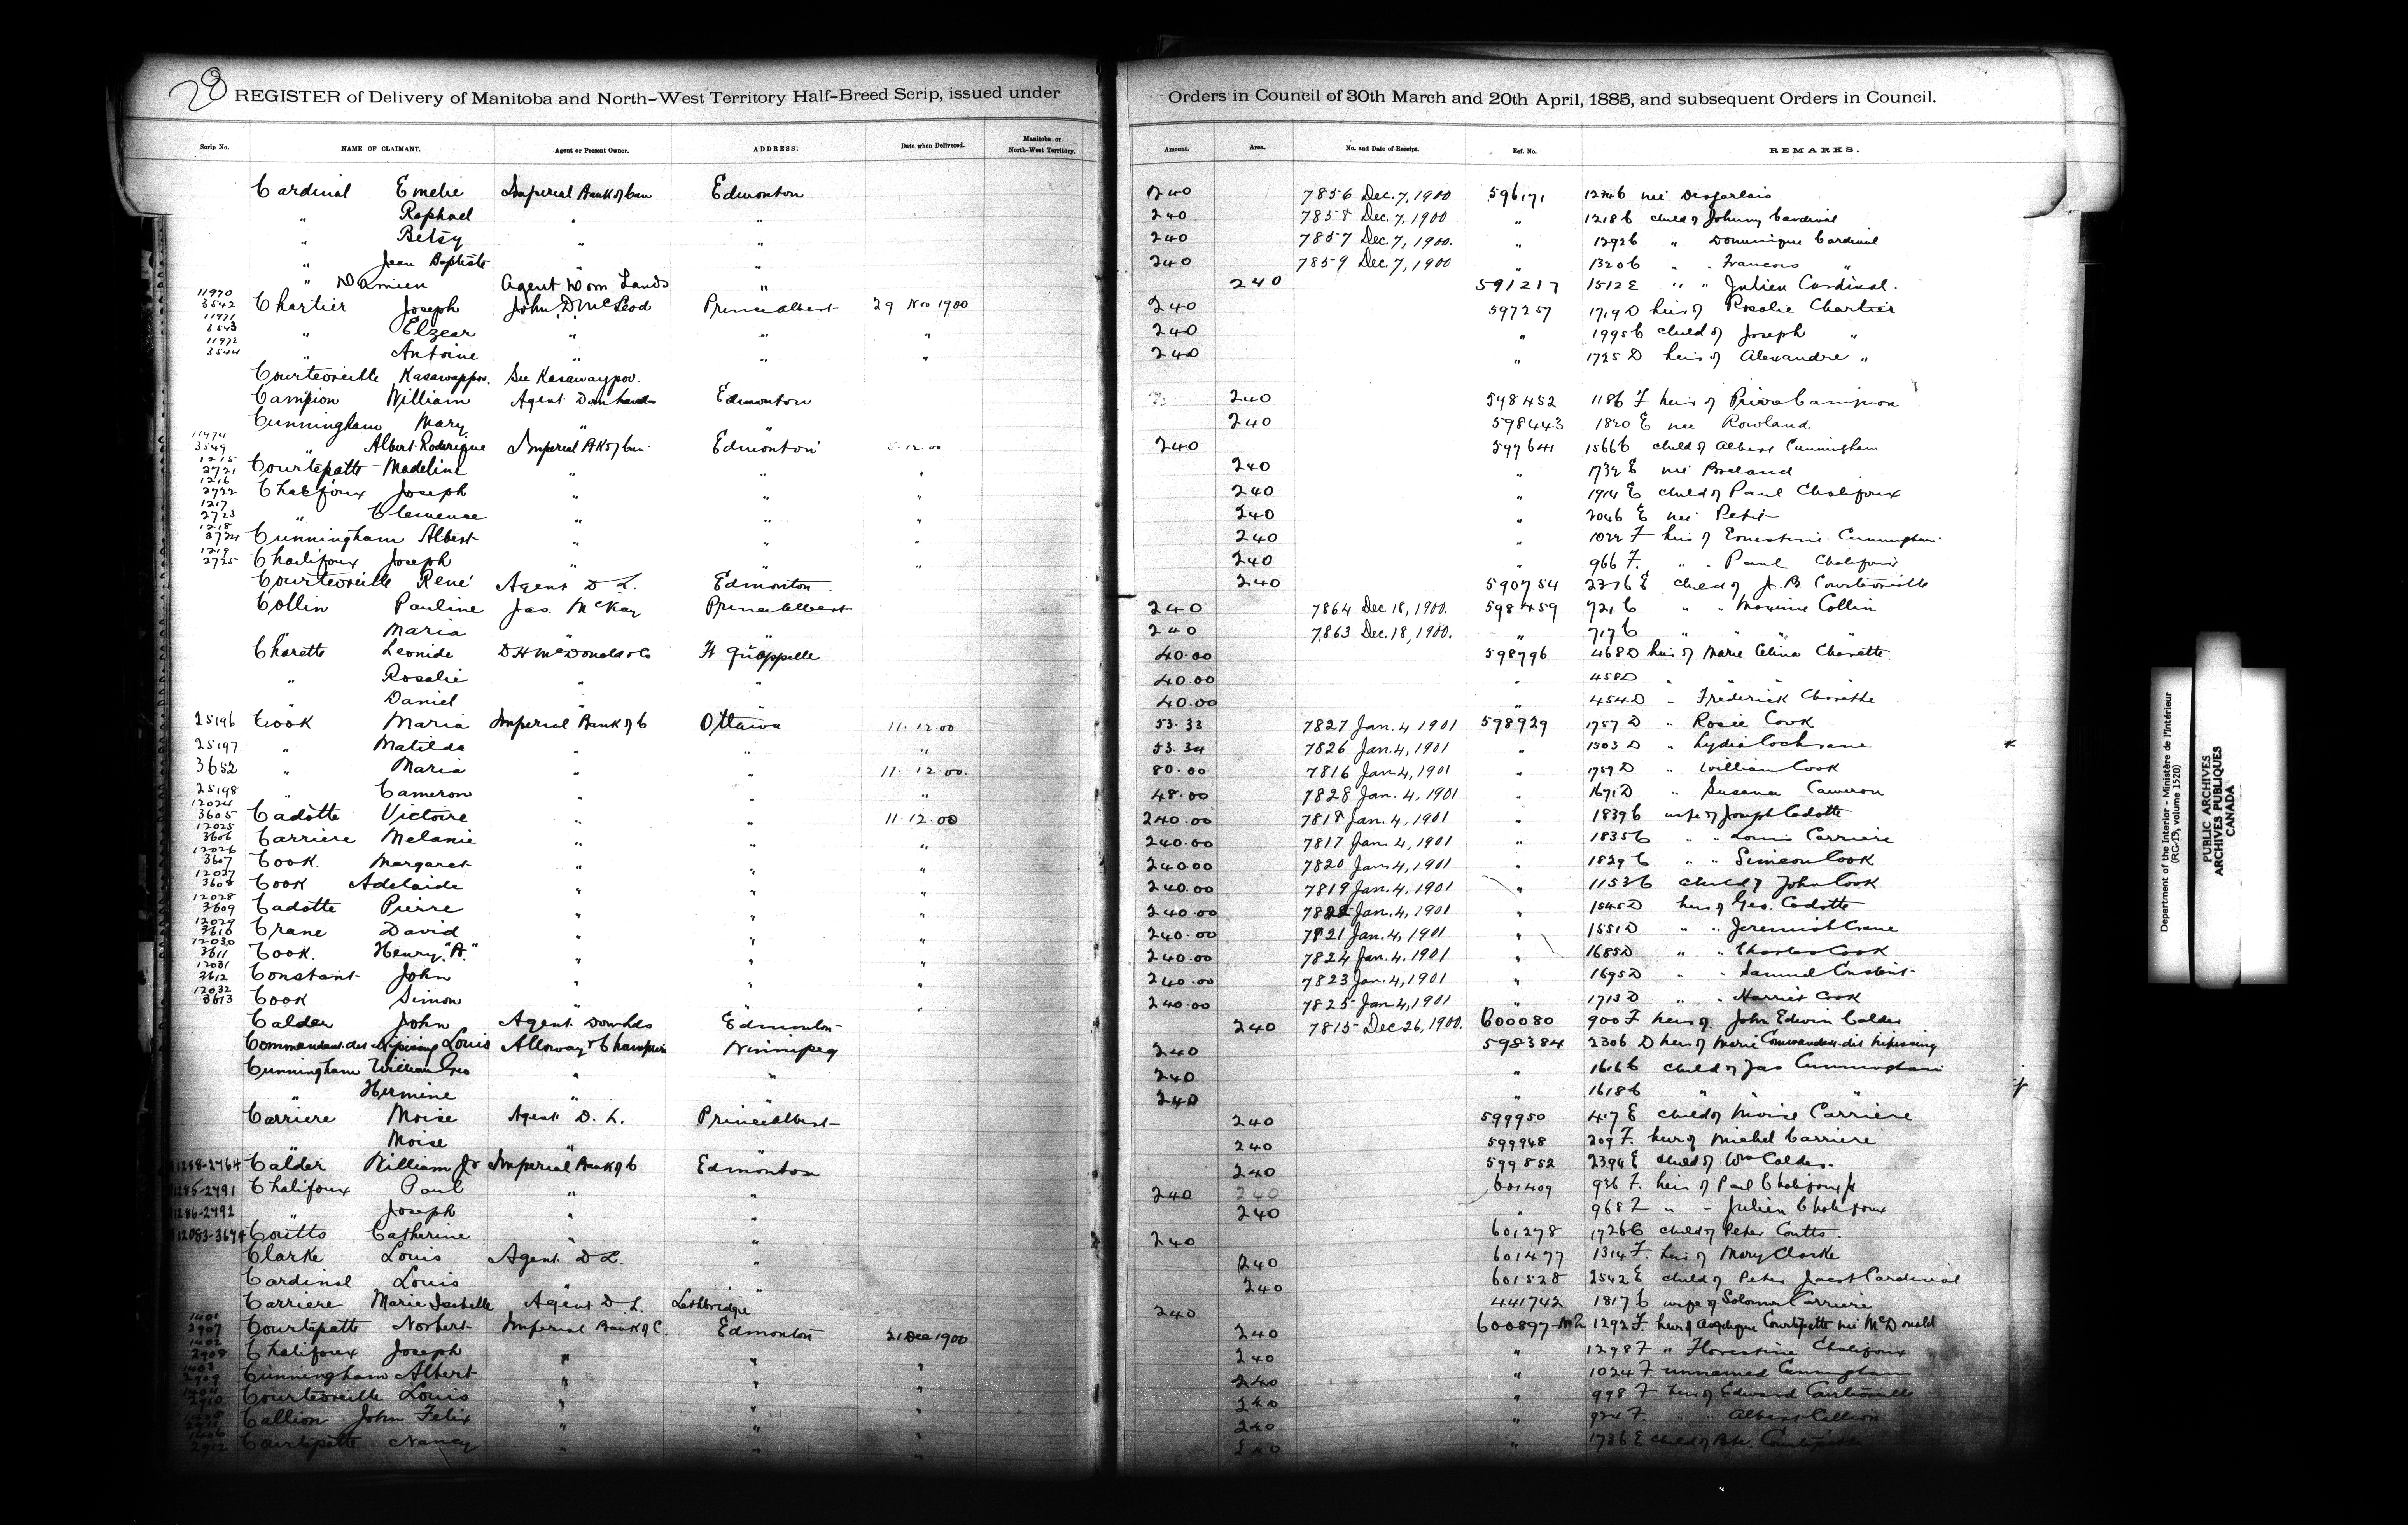 28
REGISTER of Delivery of Manitoba and North-West Territory Half-Breed Scrip, issued under Orders in Council of 30th March and 20th April, 1885, and subsequent Orders in Council.
Scrip No. NAME OF CLAIMANT. Agent or Present Owner. ADDRESS. Date when Delivered. Manitoba or North-West Territory. Amount. Area. No. and Date of Receipt. Ref. No. REMARKS.
Cardinal Emelie Imperial Bank of Can Edmonton 240 7856 Dec. 7, 1900 596171 1224b née Desjarlais
" Raphael " " 240 7858 Dec. 7, 1900 " 1218 C child of Johnny Cardinal
" Betsy " " 240 7857 Dec. 7, 1900. " 1292 C " Dominique Cardinal
" Jean Baptiste " " 240 7859 Dec. 7, 1900 " 1320 C " " Francois "
" Damien Agent Dom Lands " 240 591217 1512 E " " Julien Cardinal.
11970 3542 Chartier Joseph John D McLeod Prince Albert 29 Nov 1900 240 597257 1719 D heir of Rosalie Chartier
11971 3543 " Elzear " " " 240 " 1995 C child of Joseph "
11972 3544 " Antoine " " " 240 " 1725 D heir of Alexandre "
Courteoreille Kasawappov. See Kasawaypov.
Campion William Agent Dom Lands Edmonton 240 598452 1186 F heir of Pierre Campion
Cunningham Mary " " 240 598443 1820 E nee Rowland
11974 3549 " Albert Roderique Imperial Bk of Can Edmonton 5.12.00 240 597641 1566 C child of Albert Cunningham
1215 2721 Courtepatte Madeline " " " 240 " 1732 E née
1216 2722 Chalifoux Joseph " " " 240 " 1914 E child of Paul Chalifoux
1217 2723 " Clemence " " " 240 " 2046 E née Petit
1218 2724 Cunningham Albert " " " 240 " 1022 F heir of Ernestine Cunningham
1219 2725 Chalifoux Joseph " " " 240 " 966 F. " " Paul Chalifoux
Courteoreille René Agent D L. Edmonton. 240 590754 2376 E child of J. B. Courteoreille
Collin Pauline Jas. McKay Prince Albert 240 7864 Dec 18, 1900. 598459 721 C " " Maxime Collin
" Maria " " 240 7863 Dec. 18, 1900. " 717 C " " " "
Charette Leonide D H McDonald & Co Ft Qu'appelle 40.00 598796 468 D heir of Marie Celina Charette.
" Rosalie " " 40.00 " 458 D " " "
" Daniel " " 40.00 " 454 D " Frederick Charette
25196 Cook Maria Imperial Bank of C Ottawa 11.12.00 53.33 7827 Jan. 4 1901 598929 1757 D " Rosie Cook
25197 " Matilda " " " 53.34 7826 Jan. 4, 1901 " 1503 D " Lydia Cochrane
3652 " Maria " " 11.12.00. 80.00 7816 Jan. 4, 1901 " 1759 D " William Cook
25198 " Cameron " " " 48.00 7828 Jan. 4, 1901 " 1671 D " Susana Cameron
12024 3605 Cadotte Victoire " " 11.12.00 240.00 7818 Jan. 4, 1901 " 1839 C wife of Joseph Cadotte
12025 3606 Carriere Melanie " " " 240.00 7817 Jan. 4, 1901 " 1835 C " " Louis Carriere
12026 3607 Cook. Margaret " " " 240.00 7820 Jan. 4, 1901 " 1829 C " " Simeon Cook
12027 3608 Cook Adelaide " " " 240.00 7819 Jan. 4, 1901 " 1153 C child of John Cook
12028 3609 Cadotte Pierre " " " 240.00 7822 Jan. 4, 1901 " 1545 D heir of Geo. Cadotte
12029 3610 Crane David " " " 240.00 7821 Jan. 4, 1901 " 1551 D " " Jeremiah Crane
12030 3611 Cook. Henry "A." " " " 240.00 7824 Jan. 4. 1901 " 1685 D " " Charles Cook
12031 3612 Constant John " " " 240.00 7823 Jan. 4, 1901 " 1695 D " " Samuel Constant
12032 3613 Cook Simon " " " 240.00 7825 Jan 4, 1901 " 1713 D " " Harriet Cook
Calder John Agent Dom Lds Edmonton 240 7815 Dec 26, 1900. 600080 900 F heir of John Edwin Calder
Commandant dit Nipissing Louis Alloway & Champion Winnipeg 240 598384 2306 D heir of Marie Commandant dit Nipissing
Cunningham William Geo " " 240 " 1616 C child of Jas Cunningham
" Hermine " " 240 " 1618 C " " "
Carriere Moise Agent D. L. Prince Albert 240 599950 417 E child of Moise Carriere
" Moise " " 240 599948 209 F. heir of Michel Carriere
1258-2764 Calder William Jr Imperial Bank of C Edmonton 240 599852 2394 E child of Wm Calder.
1285-2791 Chalifoux Paul " " 240 240 601409 936 F. heir of Paul Chalifoux Jr
1286-2792 " Joseph " " 240 " 968 F " " Julien Chalifoux
12083-3674 Coutts Catherine " " 240 601278 1726 C child of Peter Coutts.
Clarke Louis Agent D L. " 240 601477 1314 F. heir of Mary Clarke
Cardinal Louis " " 240 601528 2542 E child of Peter Cardinal
Carriere Marie Isabelle Agent D. L. Lethbridge 240 441742 1817 C wife of Solomon Carriere
1401 2907 Courtepatte Norbert Imperial Bank of C. Edmonton 21 Dec 1900 240 600897 1292 F. heir of Angelique Courtepatte née McDonald
1402 2908 Chalifoux Joseph " " " 240 " 1298 F " Florestine Chalifoux
1403 2909 Cunningham Albert " " " 240 " 1024 F unnamed Cunningham
1404 2910 Courteoreille Louis " " " 240 " 998 F heir of Edward Courteoreille
Callion John Felix " " " 240 " 924 F. " " Albert Callion
1406 2912 Courtepatte Nancy " " " 240 " 1736 E child of Courtepatte
Department of the Interior - Ministère de l'Intérieur
(RG-15, volume 1520)
PUBLIC ARCHIVES
ARCHIVES PUBLIQUES
CANADA